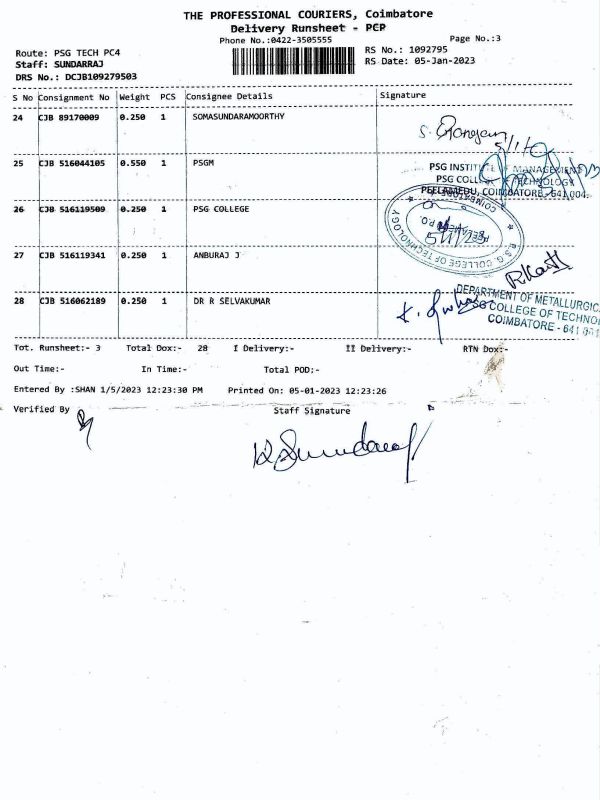 THE PROFESSIONAL COURIERS, Coimbatore
Delivery Runsheet - PCP
Phone No.:0422-3505555
Page No.:3
Route: PSG TECH PC4
RS No.: 1092795
Staff: SUNDARRAJ
RS Date: 05-Jan-2023
DRS No.: DCJB109279503
S No Consignment No Weight PCS Consignee Details Signature
24 CJB 89170009 0.250 1 SOMASUNDARAMOORTHY
25 CJB 516044105 0.550 1 PSGM
PSG INSTITUTE OF MANAGEMENT
PSG COLLEGE OF TECHNOLOGY
PEELAMEDU, COIMBATORE - 641 004.
26 CJB 516119509 0.250 1 PSG COLLEGE
P.S.G. COLLEGE OF TECHNOLOGY
COIMBATORE
PEELAMEDU P.O.
5/1/23
27 CJB 516119341 0.250 1 ANBURAJ J
28 CJB 516062189 0.250 1 DR R SELVAKUMAR
DEPARTMENT OF METALLURGICA
PSG COLLEGE OF TECHNO
COIMBATORE - 641 004
Tot. Runsheet:- 3 Total Dox:- 28 I Delivery:- II Delivery:- RTN Dox:-
Out Time:- In Time:- Total POD:-
Entered By :SHAN 1/5/2023 12:23:30 PM Printed On: 05-01-2023 12:23:26
Verified By Staff Signature